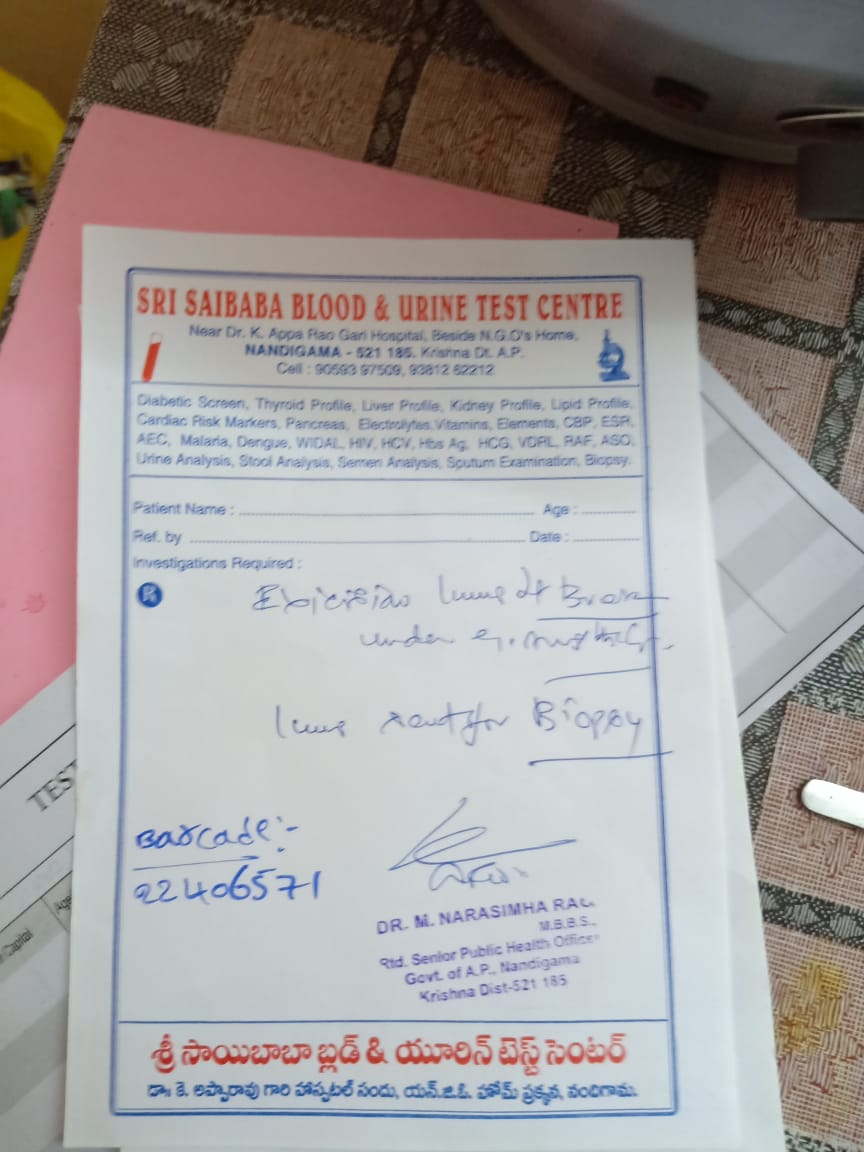 SRI SAIBABA BLOOD & URINE TEST CENTRE
Near Dr. K. Appa Rao Gari Hospital, Beside N.G.O's Home,
NANDIGAMA - 521 185. Krishna Dt. A.P.
Cell : 90593 97509, 93812 62212
Diabetic Screen, Thyroid Profile, Liver Profile, Kidney Profile, Lipid Profile,
Cardiac Risk Markers, Pancreas, Electrolytes, Vitamins, Elements, CBP, ESR,
AEC, Malaria, Dengue, WIDAL, HIV, HCV, Hbs Ag, HCG, VDRL, RAF, ASO,
Urine Analysis, Stool Analysis, Semen Analysis, Sputum Examination, Biopsy.
Patient Name : Age :
Ref. by Date :
Investigations Required :
Rx
of
under
sent for Biopsy
Barcade:-
22406571
DR. M. NARASIMHA RAO
M.B.B.S.,
Rtd. Senior Public Health Officer
Govt. of A.P., Nandigama
Krishna Dist-521 185
శ్రీ సాయిబాబా బ్లడ్ & యూరిన్ టెస్ట్ సెంటర్
డా. కె. అప్పారావు గారి హాస్పటల్ సందు, యన్.జి.ఓ. హోమ్ ప్రక్కన, నందిగామ.
TEST
Capital
Age